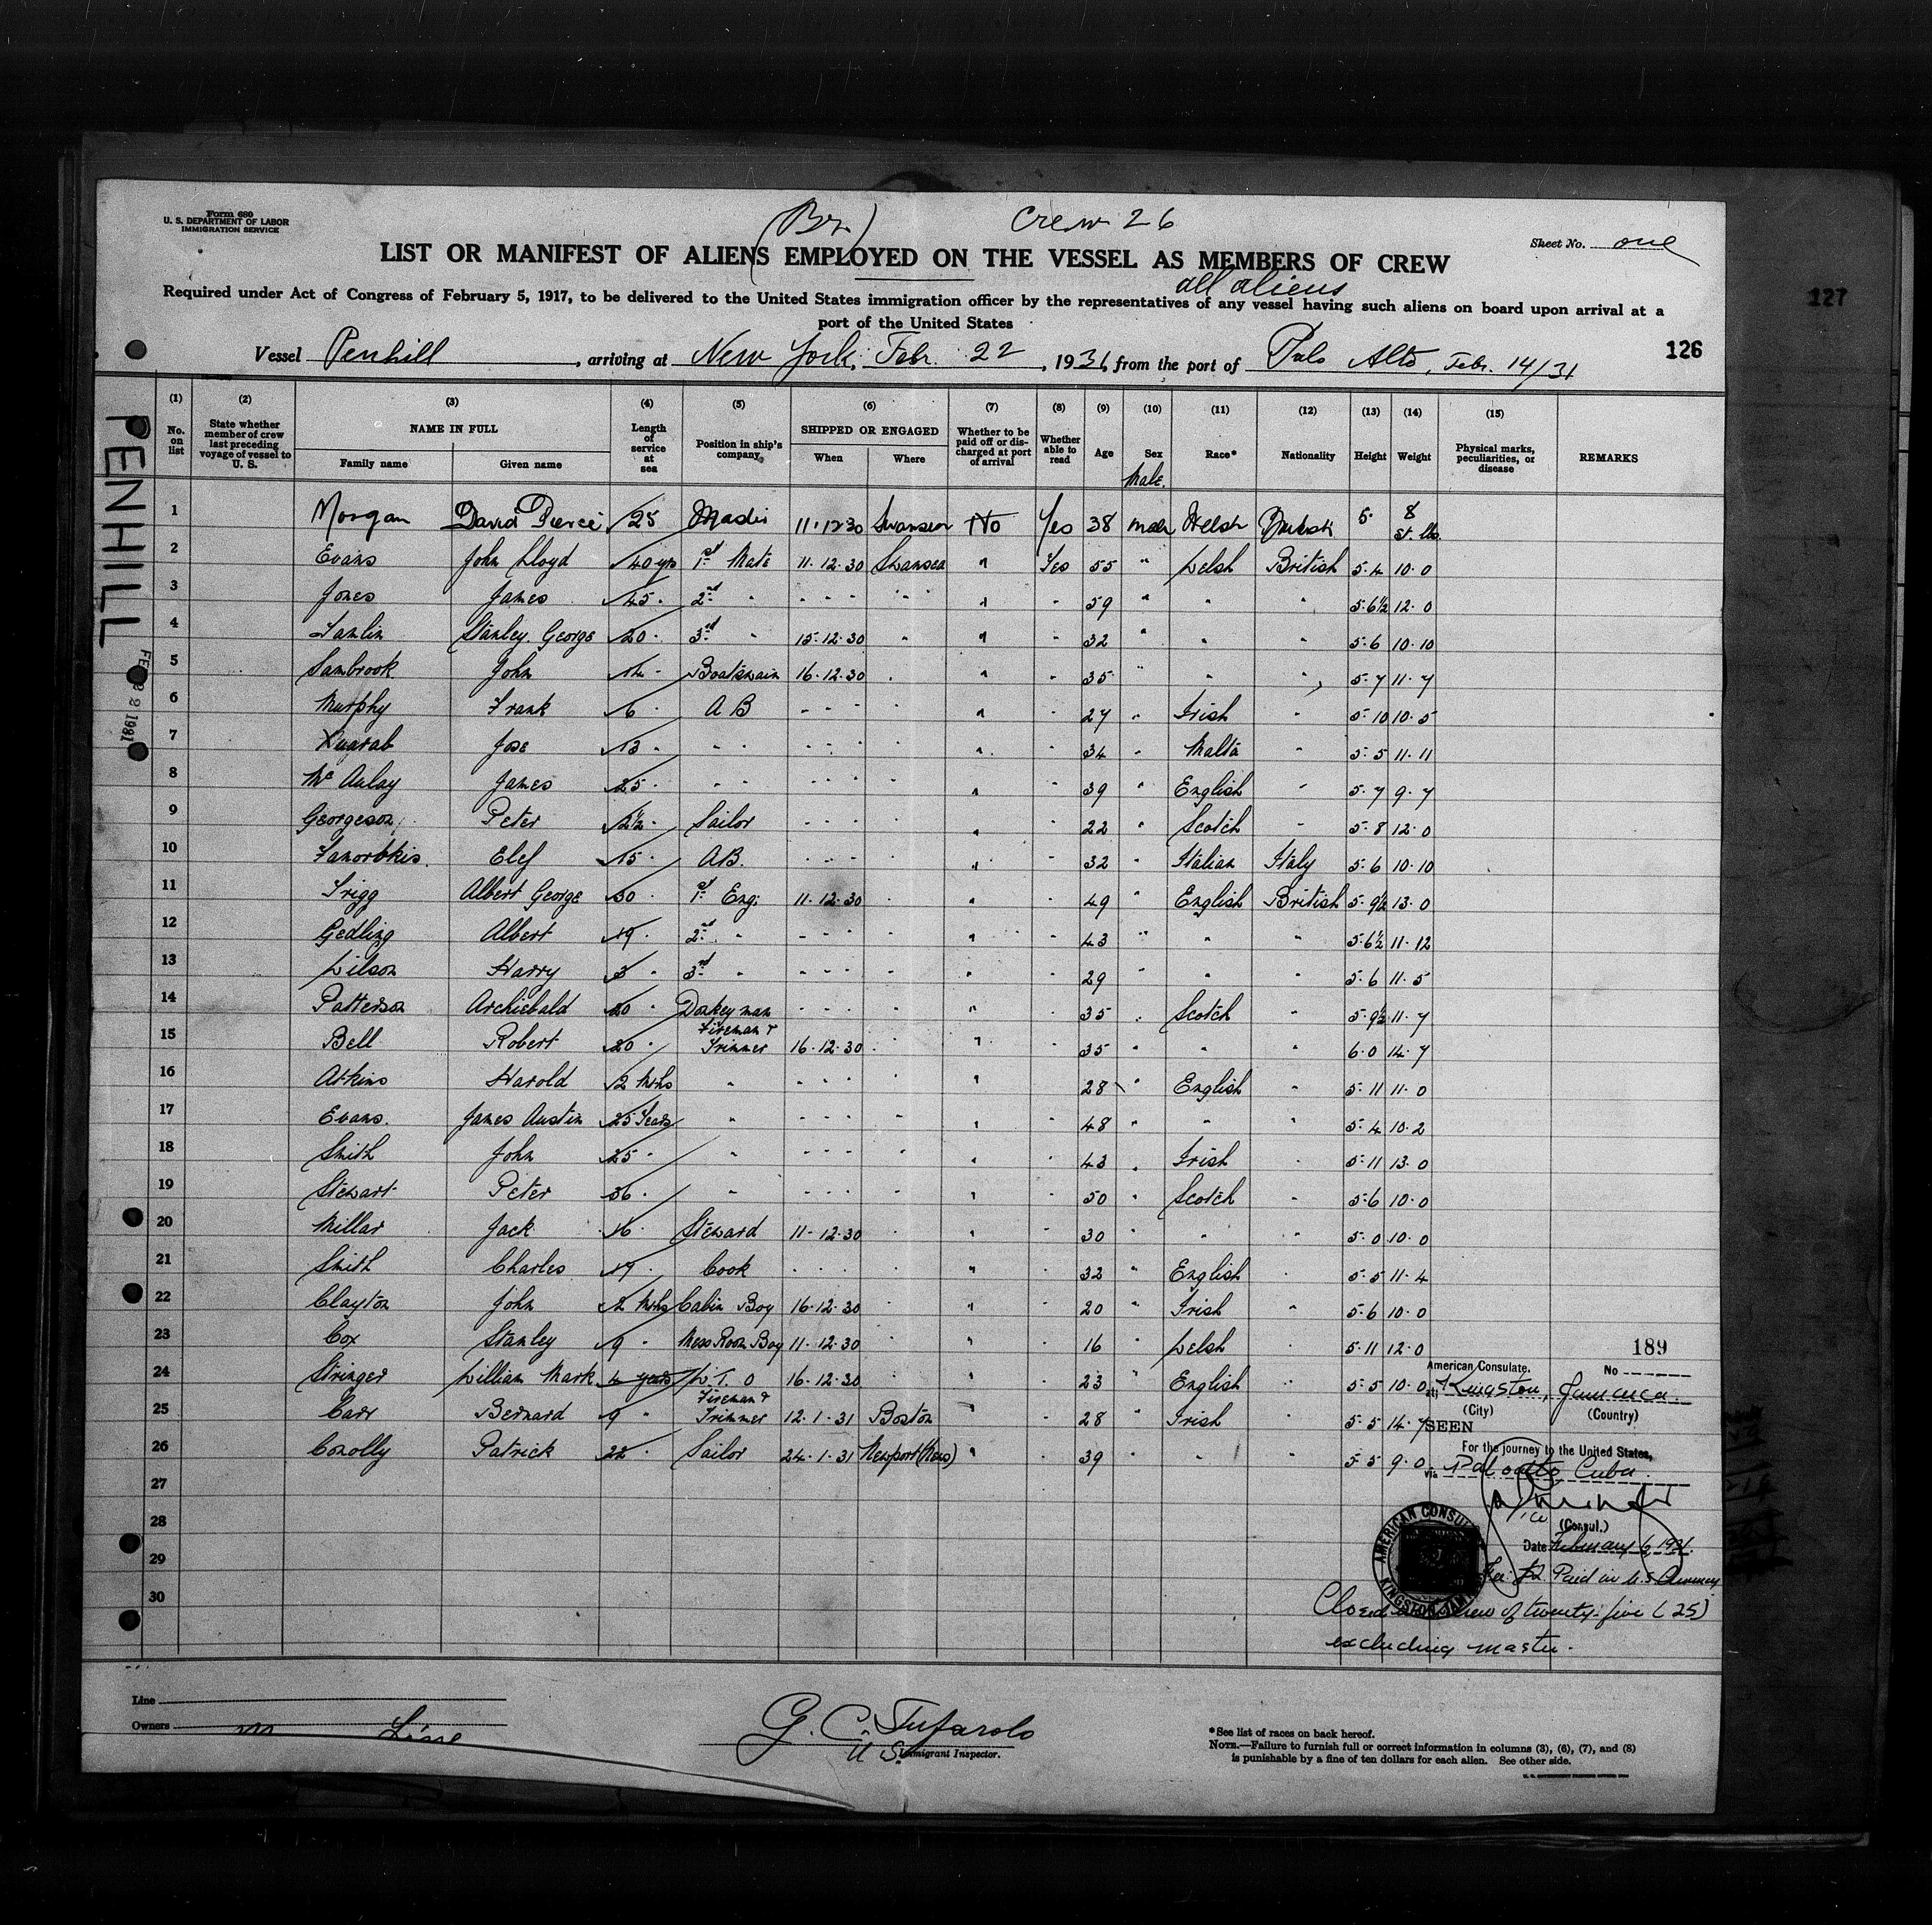 Form 680
U. S. DEPARTMENT OF LABOR
IMMIGRATION SERVICE
(Br.) Crew 26
Sheet No. one
LIST OR MANIFEST OF ALIENS EMPLOYED ON THE VESSEL AS MEMBERS OF CREW
all aliens
Required under Act of Congress of February 5, 1917, to be delivered to the United States immigration officer by the representatives of any vessel having such aliens on board upon arrival at a
port of the United States
127
126
Vessel Penhill, arriving at New York, Febr. 22, 1931, from the port of Palo Alto, Febr. 14/31
PENHILL
(1) (2) (3) (4) (5) (6) (7) (8) (9) (10) (11) (12) (13) (14) (15)
No. on list State whether member of crew last preceding voyage of vessel to U. S. NAME IN FULL Length of service at sea Position in ship's company SHIPPED OR ENGAGED Whether to be paid off or discharged at port of arrival Whether able to read Age Sex Race* Nationality Height Weight Physical marks, peculiarities, or disease REMARKS
Family name Given name When Where
Male.
1 Morgan David Pierce 25 11.12.30 Swansea No Yes 38 Welsh 5. 8
St. lbs.
2 Evans John Lloyd 40 yrs 1st Mate 11.12.30 Swansea " Yes 55 " Welsh British 5.4 10.0
3 Jones James 45 " 2nd " " " " " 59 " " " 5.6½ 12.0
4 Tamlin Stanley George 20 " 3rd " 15.12.30 " " " 32 " " " 5.6 10.10
5 Sambrook John 14 " Boatswain 16.12.30 " " " 35 " " " 5.7 11.7
6 Murphy Frank 6 " A B " " " " 27 " Irish " 5.10 10.5
7 Jose 13 " " " " " " 34 " Malta " 5.5 11.11
8 Mc Aulay James 25 " " " " " " 39 " English " 5.7 9.7
9 Georgeson Peter 2½ " Sailor " " " " 22 " Scotch " 5.8 12.0
10 Elef 15 " A.B. " " " " 32 " Italian Italy 5.6 10.10
11 Trigg Albert George 30 " 1st Eng. 11.12.30 " " " 49 " English British 5.9½ 13.0
12 Gedling Albert 19 " 2nd " " " " " 43 " " " 5.6½ 11.12
13 Wilson Harry 5 " 3rd " " " " " 29 " " " 5.6 11.5
14 Patterson Archiebald 20 " Donkeyman " " " " 35 " Scotch " 5.9½ 11.7
15 Bell Robert 20 " Fireman & Trimmer 16.12.30 " " " 35 " " " 6.0 14.7
16 Atkins Harold 2 Mths " " " " " 28 " English " 5.11 11.0
17 Evans James Austin 25 Years " " " " " 48 " " " 5.4 10.2
18 Smith John 25 " " " " " " 43 " Irish " 5.11 13.0
19 Stewart Peter 36 " " " " " " 50 " Scotch " 5.6 10.0
20 Millar Jack 16 " Steward 11.12.30 " " " 30 " " " 5.0 10.0
21 Smith Charles 17 " Cook " " " " 32 " English " 5.5 11.4
22 Clayton John 2 Mths Cabin Boy 16.12.30 " " " 20 " Irish " 5.6 10.0
23 Cox Stanley 9 " Mess Room Boy 11.12.30 " " " 16 " Welsh " 5.11 12.0
24 Stringer William Mark 4 years W. T. O 16.12.30 " " " 23 " English " 5.5 10.0
25 Carr Bernard 9 " Fireman & Trimmer 12.1.31 Boston " " 28 " Irish " 5.5 14.7
26 Conolly Patrick 22 " Sailor 24.1.31 Newport (News) " 39 " " " 5.5 9.0
27
28
29
30
189
American Consulate. No
at Kingston, Jamaica.
(City) (Country)
SEEN
For the journey to the United States,
via Palo alto, Cuba.
Vice
(Consul.)
Date February 6, 1931.
Fee: $2 Paid in U.S. Currency
AMERICAN CONSUL
KINGSTON, JAM
Closed crew of twenty-five (25)
excluding master.
Line
Owners Line
G. C. Tufarolo
U. S. Immigrant Inspector.
*See list of races on back hereof.
NOTE.—Failure to furnish full or correct information in columns (3), (6), (7), and (8)
is punishable by a fine of ten dollars for each alien. See other side.